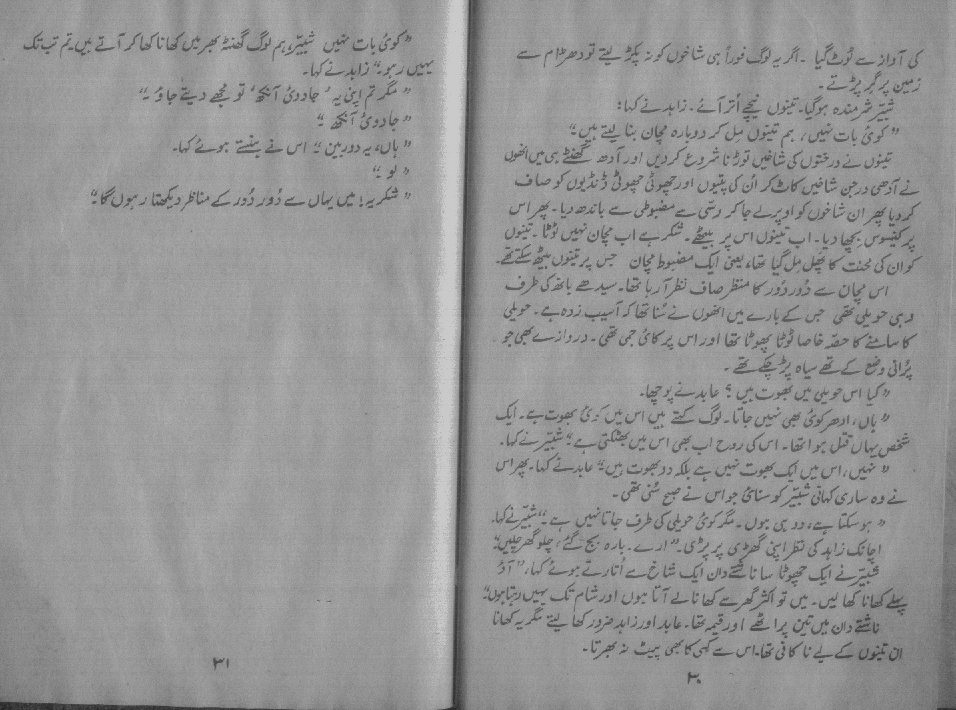 کی آواز سے ٹوٹ گیا۔ اگر یہ لوگ فوراً ہی شاخوں کو نہ پکڑ لیتے تو دھڑام سے
زمین پر گر پڑتے۔
شبیّر شرمندہ ہوگیا۔ تینوں نیچے اُتر آئے۔ زاہد نے کہا:
"کوئی بات نہیں، ہم تینوں مِل کر دوبارہ مچان بنا لیتے ہیں۔"
تینوں نے درختوں کی شاخیں توڑنا شروع کر دیں اور آدھ گھنٹے ہی میں انھوں
نے آدھی درجن شاخیں کاٹ کر اُن کی پتیوں اور چھوٹی چھوٹی ڈنڈیوں کو صاف
کر دیا پھر ان شاخوں کو اوپر لے جا کر رسّی سے مضبوطی سے باندھ دیا۔ پھر اس
پر کینوس بچھا دیا۔ اب تینوں اس پر بیٹھے۔ شکر ہے اب مچان نہیں ٹوٹا۔ تینوں
کو ان کی محنت کا پھل مل گیا تھا، یعنی ایک مضبوط مچان جس پر تینوں بیٹھ سکتے تھے۔
اس مچان سے دُور دُور کا منظر صاف نظر آ رہا تھا۔ سیدھے ہاتھ کی طرف
وہی حویلی تھی جس کے بارے میں انھوں نے سُنا تھا کہ آسیب زدہ ہے۔ حویلی
کا سامنے کا حصّہ خاصا ٹوٹا پھوٹا تھا اور اس پر کائی جمی تھی۔ دروازے بھی جو
پُرانی وضع کے تھے سیاہ پڑ چکے تھے۔
"کیا اس حویلی میں بھوت ہیں؟ عابد نے پوچھا۔
"ہاں، ادھر کوئی بھی نہیں جاتا۔ لوگ کہتے ہیں اس میں کوئی بھوت ہے۔ ایک
شخص یہاں قتل ہوا تھا۔ اس کی روح اب بھی اس میں بھٹکتی ہے۔" شبیّر نے کہا۔
"نہیں، اس میں ایک بھوت نہیں ہے بلکہ دو بھوت ہیں۔" عابد نے کہا۔ پھر اس
نے وہ ساری کہانی شبیّر کو سنائی جو اس نے صبح سُنی تھی۔
"ہو سکتا ہے، دو ہی ہوں۔ مگر کوئی حویلی کی طرف جاتا نہیں ہے۔" شبیّر نے کہا۔
اچانک زاہد کی نظر اپنی گھڑی پر پڑی۔ "ارے۔ بارہ بج گئے، چلو گھر چلیں۔"
شبیّر نے ایک چھوٹا سا ناشتے دان ایک شاخ سے اُتارتے ہوئے کہا، "آؤ
پہلے کھانا کھا لیں۔ میں تو اکثر گھر سے کھانا لے آتا ہوں اور شام تک یہیں رہتا ہوں۔"
ناشتے دان میں تین پراٹھے اور قیمہ تھا۔ عابد اور زاہد ضرور کھا لیتے مگر یہ کھانا
ان تینوں کے لیے ناکافی تھا۔ اس سے کسی کا بھی پیٹ نہ بھرتا۔
۳۰
"کوئی بات نہیں شبیّر، ہم لوگ گھنٹہ بھر میں کھانا کھا کر آتے ہیں۔ تم تب تک
یہیں رہو۔" زاہد نے کہا۔
"مگر تم اپنی یہ 'جادوئی آنکھ' تو مجھے دیتے جاؤ۔"
"جادوئی آنکھ۔"
"ہاں، یہ دوربین۔" اس نے ہنستے ہوئے کہا۔
"لو۔"
"شکریہ! میں یہاں سے دُور دُور کے مناظر دیکھتا رہوں گا۔"
۳۱